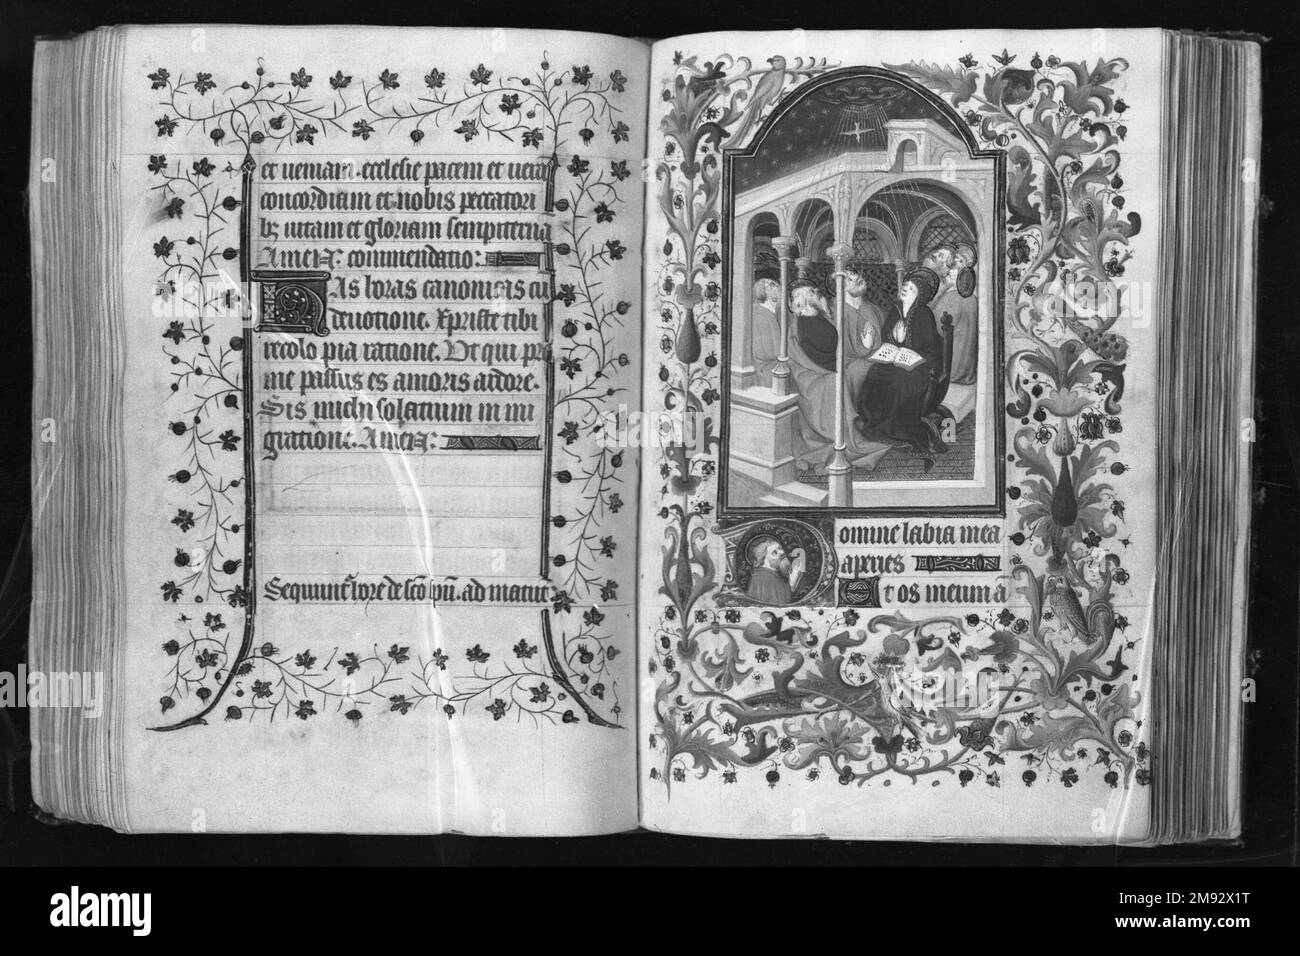 et veniam. ecclesie pacem et vera
concordiam et nobis peccatori
bȝ vitam et gloriam sempiternā
Amen: commendatio:
Has horas canonicas cū
devotione. Xp̄riste tibi
recolo pia ratione. Ut qui pro
me passus es amoris ardore.
Sis michi solatium in mi
gratione. Amen:
Sequunt̄ hore de sc̄o sp̄u. ad matut̄
Domine labia mea
aperies
Et os meum ā
alamy
Image ID: 2M92X1T
www.alamy.com